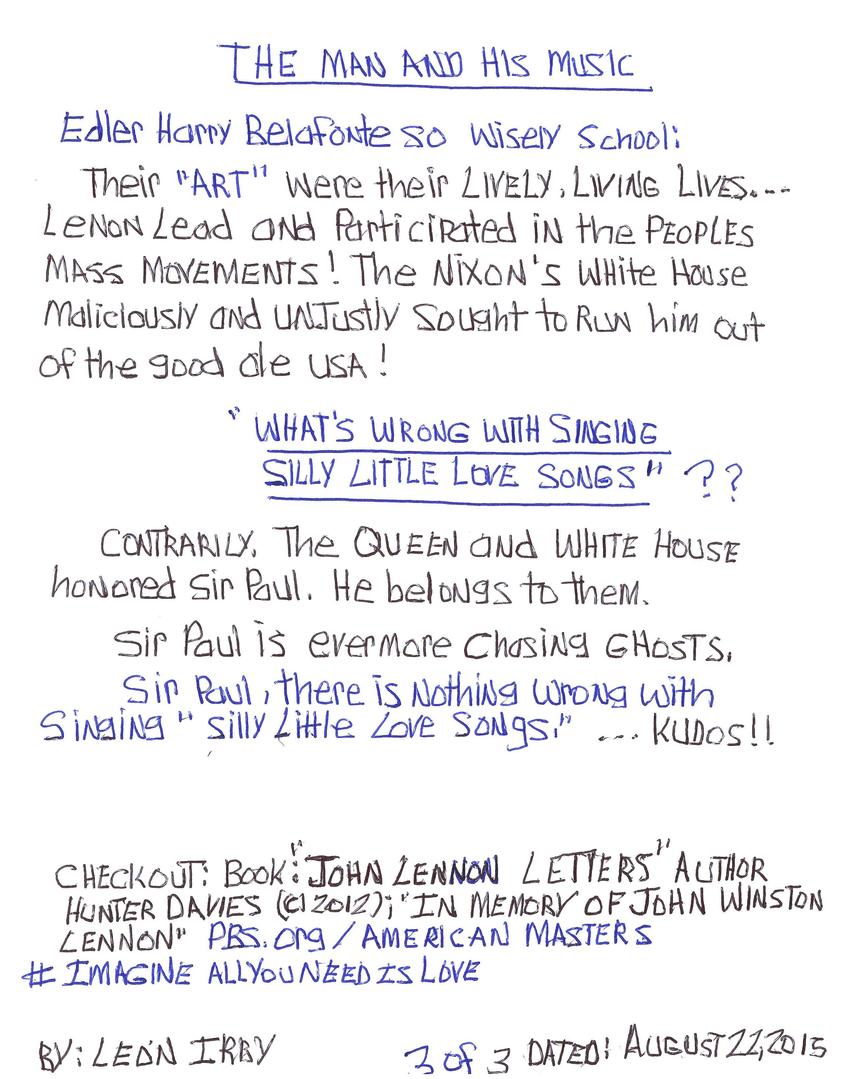 THE MAN AND HIS MUSIC
Edler Harry Belafonte so wisely School:
Their "ART" were their LIVELY, LIVING LIVES...-
LENON Lead and Participated in the PEOPLES
MASS MOVEMENTS! The NIXON'S White House
Maliciously and UNJustly Sought to RUN him out
of the good ole USA!
"WHAT'S WRONG WITH SINGING
SILLY LITTLE LOVE SONGS" ??
CONTRARILY, The QUEEN and WHITE HOUSE
honored Sir Paul. He belongs to them.
Sir Paul is evermore Chasing GHOSTS,
Sir Paul, there is Nothing Wrong with
Singing "Silly Little Love Songs," ... KUDOS!!
CHECKOUT: Book: "JOHN LENNON LETTERS" AUTHOR
HUNTER DAVIES (C) 2012); "IN MEMORY OF JOHN WINSTON
LENNON" PBS.Org/AMERICAN MASTERS
# IMAGINE ALLYOUNEEDISLOVE
BY: LEON IRBY 3 of 3 DATED: AUGUST 22, 2015